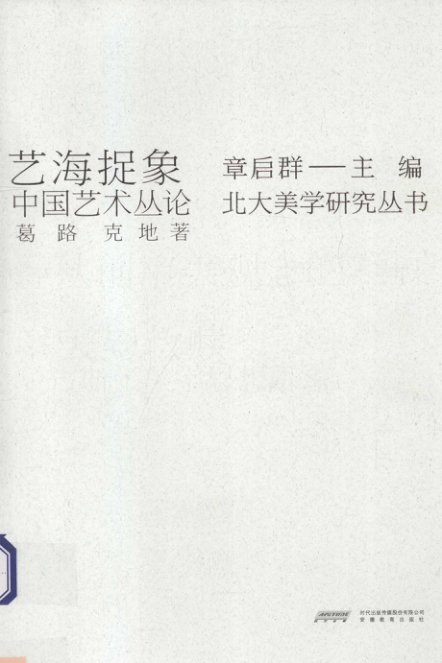 艺海捉象
中国艺术丛论
葛路 克地著
章启群——主编
北大美学研究丛书
时代出版传媒股份有限公司
安徽教育出版社